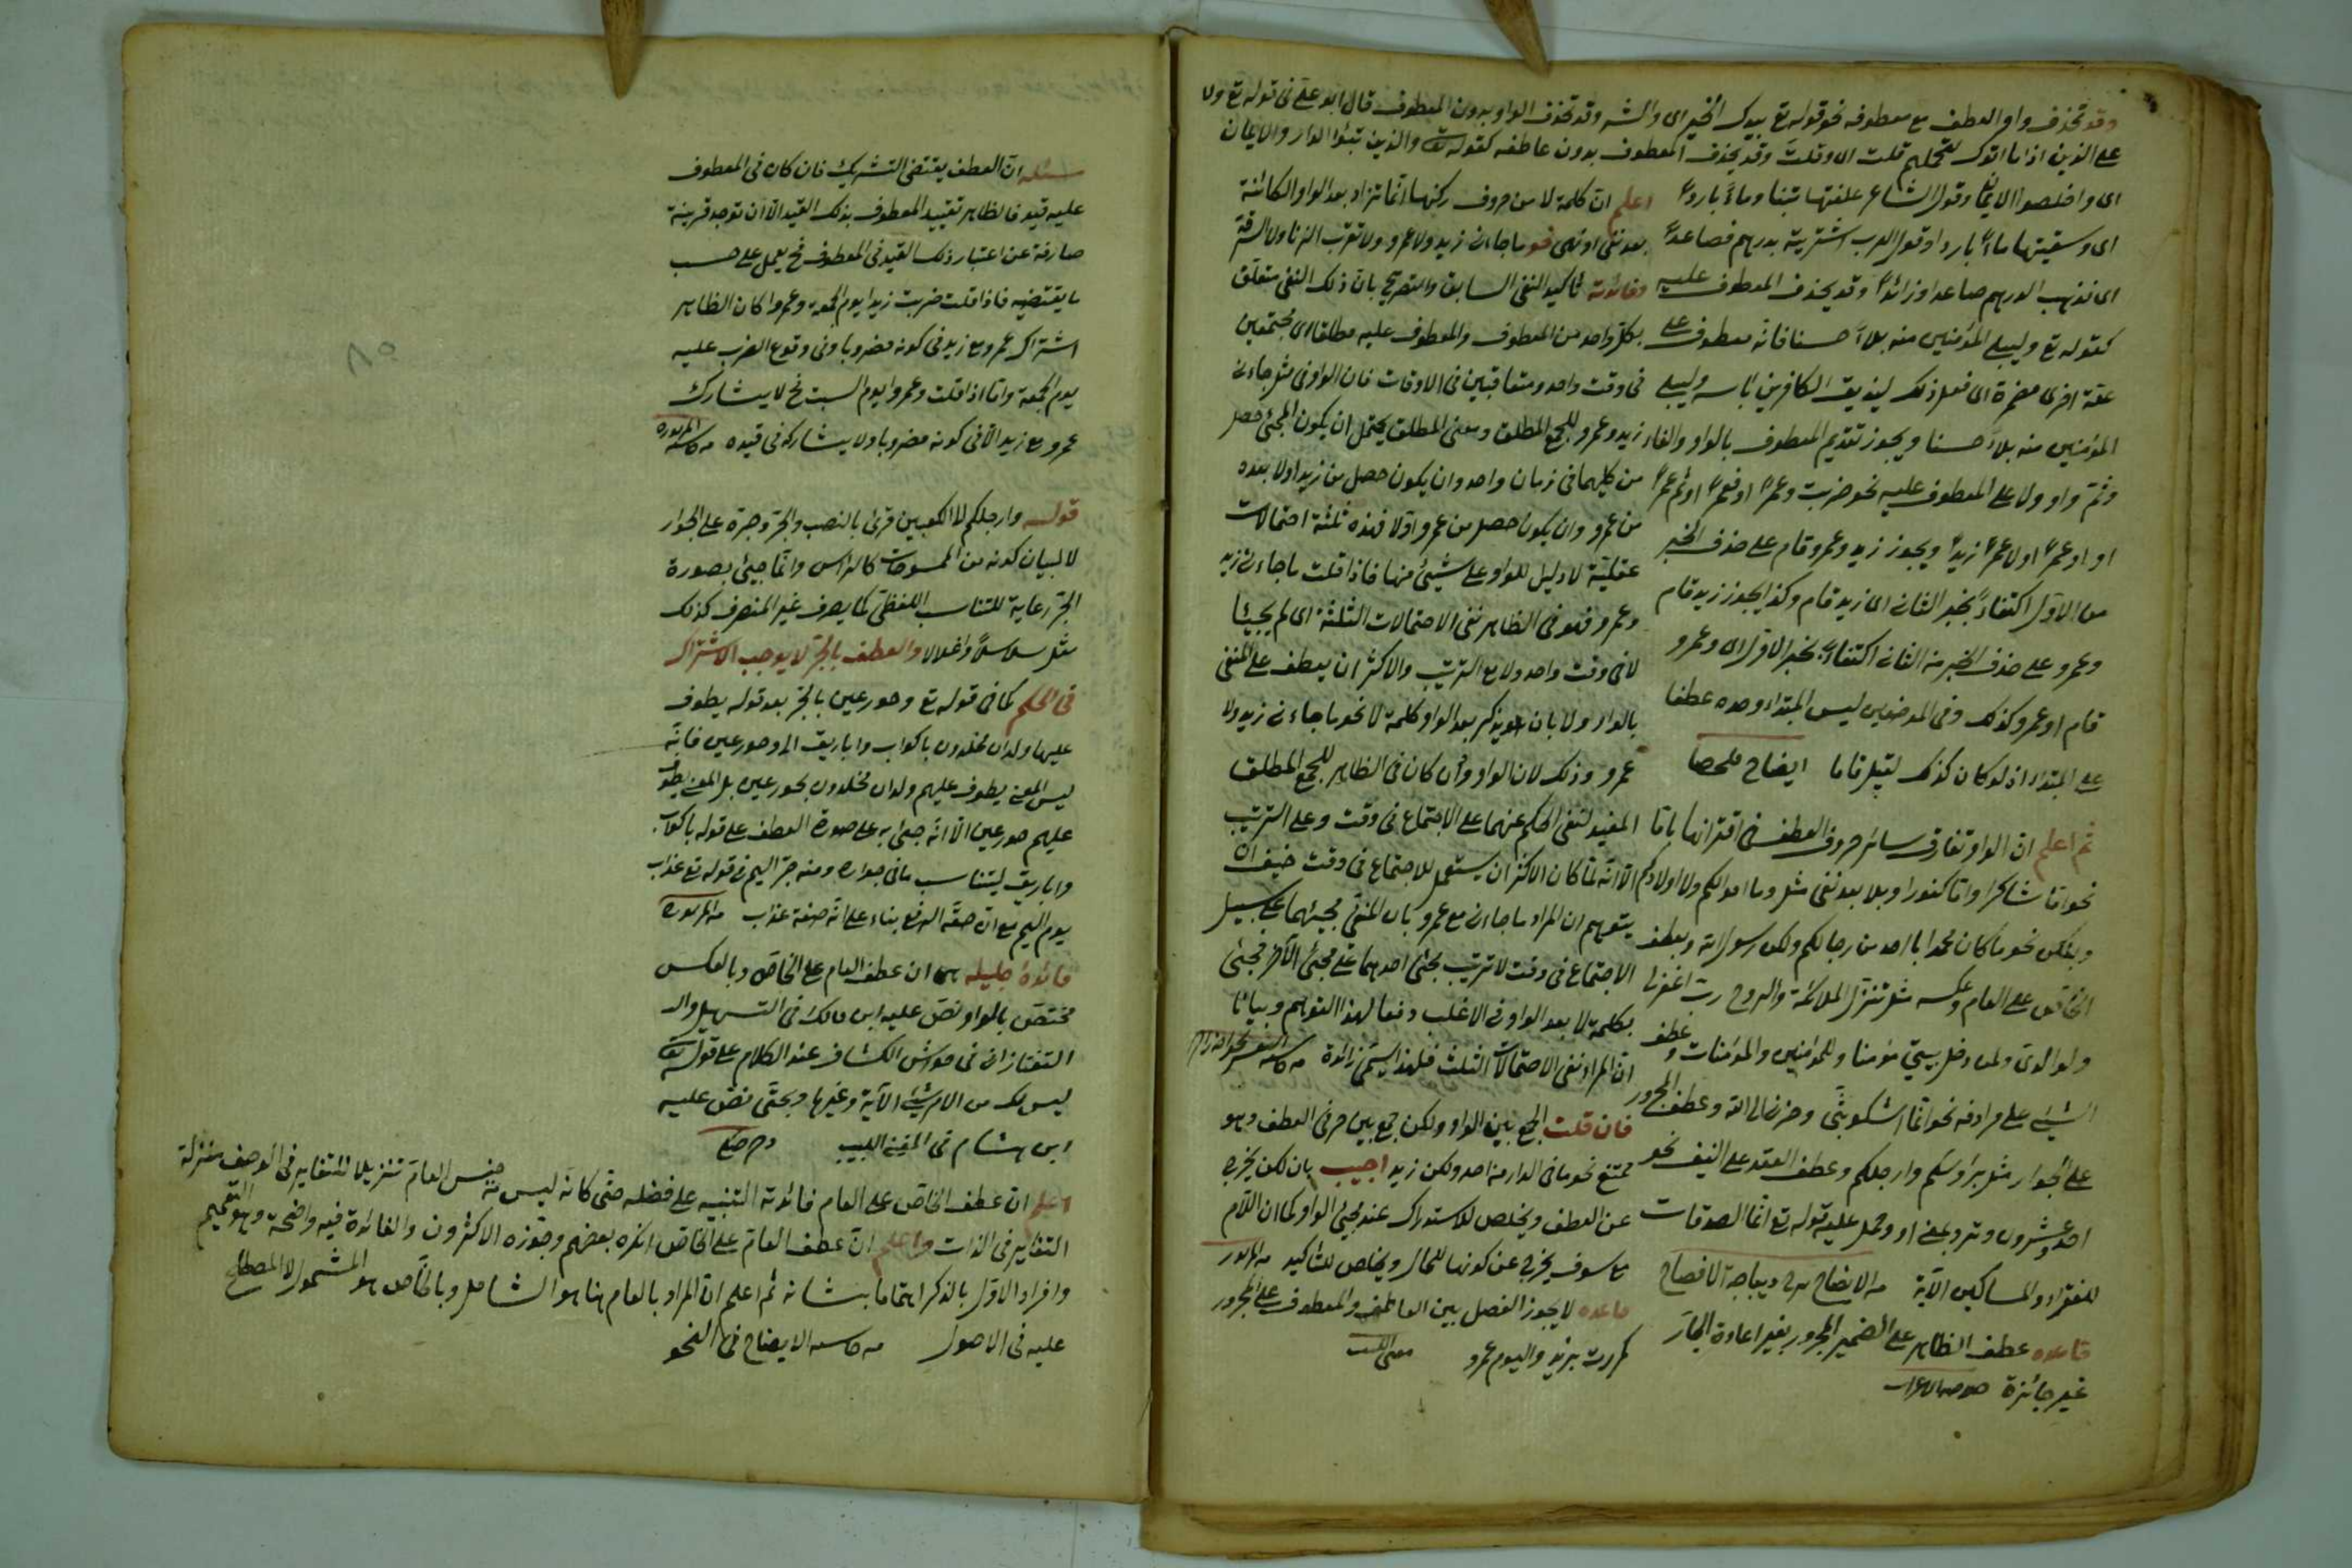 وقد تحذف واو العطف مع معطوفه نحو قوله تع بيدك الخير اى والشر وقد تحذف الواو بدون المعطوف قال ابو على فى قوله تع ولا
على الذين اذا ما اتوك لتحملهم قلت اى وقلت وقد يحذف المعطوف بدون عاطفه كقوله تع والذين تبوؤا الدار والايمان
اى واخلصوا الايمان وقول الشاعر علفتها تبنا وماءً باردا
اى وسقيتها ماءً باردا وقول العرب اشتريته بدرهم فصاعداً
اى فذهب الدرهم صاعدا او زائداً وقد يحذف المعطوف عليه
كقوله تع وليبلى المؤمنين منه بلاءً حسنا فانه معطوف على
علة اخرى مضمرة اى فعل ذلك ليذيق الكافرين باسه وليبلى
المؤمنين منه بلاءً حسنا ويجوز تقديم المعطوف بالواو والفاء
وثم واو ولا على المعطوف عليه نحو ضربت وعمراً او فعمراً او ثم عمراً
او او عمراً او لا عمراً زيداً ويجوز زيد وعمرو قام على حذف الخبر
من الاول اكتفاءً بخبر الثانى اى زيد قام وكذا يجوز زيد قام
وعمرو على حذف الخبر من الثانى اكتفاءً بخبر الاول اى وعمرو
قام او عمرو كذلك وفى الموضعين ليس المبتداء وحده عطفا
على المبتداء اذ لو كان كذلك لقيل قاما ايضاح ملخصا
ثم اعلم ان الواو تفارق سائر حروف العطف فى اقترانها باما
نحو اما شاكرا واما كفورا وبلا بعد نفى مثل وما اموالكم ولا اولادكم
وبلكن نحو ما كان محمد ابا احد من رجالكم ولكن رسول الله وبعطف
الخاص على العام وعكسه مثل تنزل الملائكة والروح رب اغفر لى
ولوالدى ولمن دخل بيتى مؤمنا وللمؤمنين والمؤمنات وعطف
الشيئ على مرادفه نحو انما اشكو بثى وحزنى الى الله وعطف المجرور
على الجوار مثل برؤسكم وارجلكم وعطف العقد على النيف نحو
احد وعشرون وترد بمعنى او وحمل عليه قوله تع انما الصدقات
للفقراء والمساكين الآية من الايضاح شرح ديباجة الافصاح
قاعده عطف الظاهر على الضمير المجرور بغير اعادة الجار
غير جائزة
اعلم ان كلمة لا من حروف ركنها انما تزاد بعد الواو الكائنة
بعد نفى او نهى نحو ما جاءنى زيد ولا عمرو ولا تقرب الزنا ولا السرقة
وفائدته تأكيد النفى السابق والتصريح بان ذلك النفى متعلق
بكل واحد من المعطوف والمعطوف عليه مطلقا اى مجتمعين
فى وقت واحد ومتعاقبين فى الاوقات فان الواو فى مثل جاءنى
زيد وعمرو للجمع المطلق ومعنى المطلق يحتمل ان يكون المجئ حصل
من كليهما فى زمان واحد وان يكون حصل من زيد اولا بعده
من عمرو وان يكون حصل من عمرو اولا فهذه ثلثة احتمالات
عقلية لا دليل للواو على شيئ منها فاذا قلت ما جاءنى زيد
وعمرو فهو فى الظاهر نفى الاحتمالات الثلثة اى لم يجيئا
لا فى وقت واحد ولا مع الترتيب والاكثر ان يعطف على المنفى
بالواو ولا بان يذكر بعد الواو كلمة لا نحو ما جاءنى زيد ولا
عمرو وذلك لان الواو وان كان فى الظاهر للجمع المطلق
المفيد لنفى الحكم عنهما على الاجتماع فى وقت وعلى الترتيب
الا انه لما كان الاكثر ان يستعمل للاجتماع فى وقت خيف ان
يتوهم ان المراد ما جاءنى مع عمرو بان المنفى مجيئهما على سبيل
الاجتماع فى وقت لا ترتيب بمجئ احدهما على مجئ الآخر فجئ
بكلمة لا بعد الواو فى الاغلب دفعا لهذا التوهم وبيانا
ان المراد نفى الاحتمالات الثلث فلهذا يسمى زائدة
فان قلت الجمع بين الواو ولكن جمع بين حرفى العطف وهو
ممتنع نحو ما فى الدار من احد ولكن زيد اجيب بان لكن يخرج
عن العطف ويخلص للاستدراك عند مجئ الواو كما ان اللام
مع سوف يخرج عن كونها للحال ويخلص للتأكيد
قاعده لا يجوز الفصل بين العاطف والمعطوف على المجرور
كمررت بزيد واليوم عمرو
مسئله ان العطف يقتضى التشريك فان كان فى المعطوف
عليه قيد فالظاهر تقييد المعطوف بذلك القيد الا ان توجد قرينة
صارفة عن اعتبار ذلك القيد فى المعطوف فح يعمل على حسب
ما يقتضيه فاذا قلت ضربت زيدا يوم الجمعة وعمروا كان الظاهر
اشتراك عمرو مع زيد فى كونه مضروبا وفى وقوع الضرب عليه
يوم الجمعة واما اذا قلت وعمروا يوم السبت فح لا يشارك
عمرو مع زيد الا فى كونه مضروبا ولا يشاركه فى قيده
قوله وارجلكم الى الكعبين قرئ بالنصب والجر وجره على الجوار
لا لبيان كونه من الممسوحات كالرأس وانما جيئ بصورة
الجر رعاية للتناسب اللفظى كما يصرف غير المنصرف كذلك
مثل سلاسلاً واغلالا والعطف بالجر لا يوجب الاشتراك
فى الحكم كما فى قوله تع وحور عين بالجر بعد قوله يطوف
عليهم ولدان مخلدون باكواب واباريق الى وحور عين فانه
ليس المعنى يطوف عليهم ولدان مخلدون بحور عين بل المعنى يطوف
عليهم حور عين الا انه جئ به على صورة العطف على قوله باكواب
واباريق ليتناسب ما فى جواره ومنه جر اليم فى قوله تع عذاب
يوم اليم مع ان حقه الرفع بناء على انه صفة عذاب
فائدة جليله هى ان عطف العام على الخاص وبالعكس
مختص بالواو نص عليه ابن مالك فى التسهيل والد
التفتازانى فى حواش الكشاف عند الكلام على قوله تع
ليس لك من الامر شيئ الآية وغيرها وبحتى نص عليه
ابن هشام فى المغنى اللبيب
اعلم ان عطف الخاص على العام فائدته التنبيه على فضله حتى كانه ليس من جنس العام تنزيلا للتغاير فى الوصف منزلة
التغاير فى الذات واعلم ان عطف العام على الخاص انكره بعضهم وجوزه الاكثرون والفائدة فيه واضحة وهو التعميم
وافراد الاول بالذكر اهتماما بشانه ثم اعلم ان المراد بالعام هنا هو الشامل وبالخاص هو المشمول لا المصطلح
عليه فى الاصول من حاشية الايضاح فى النحو